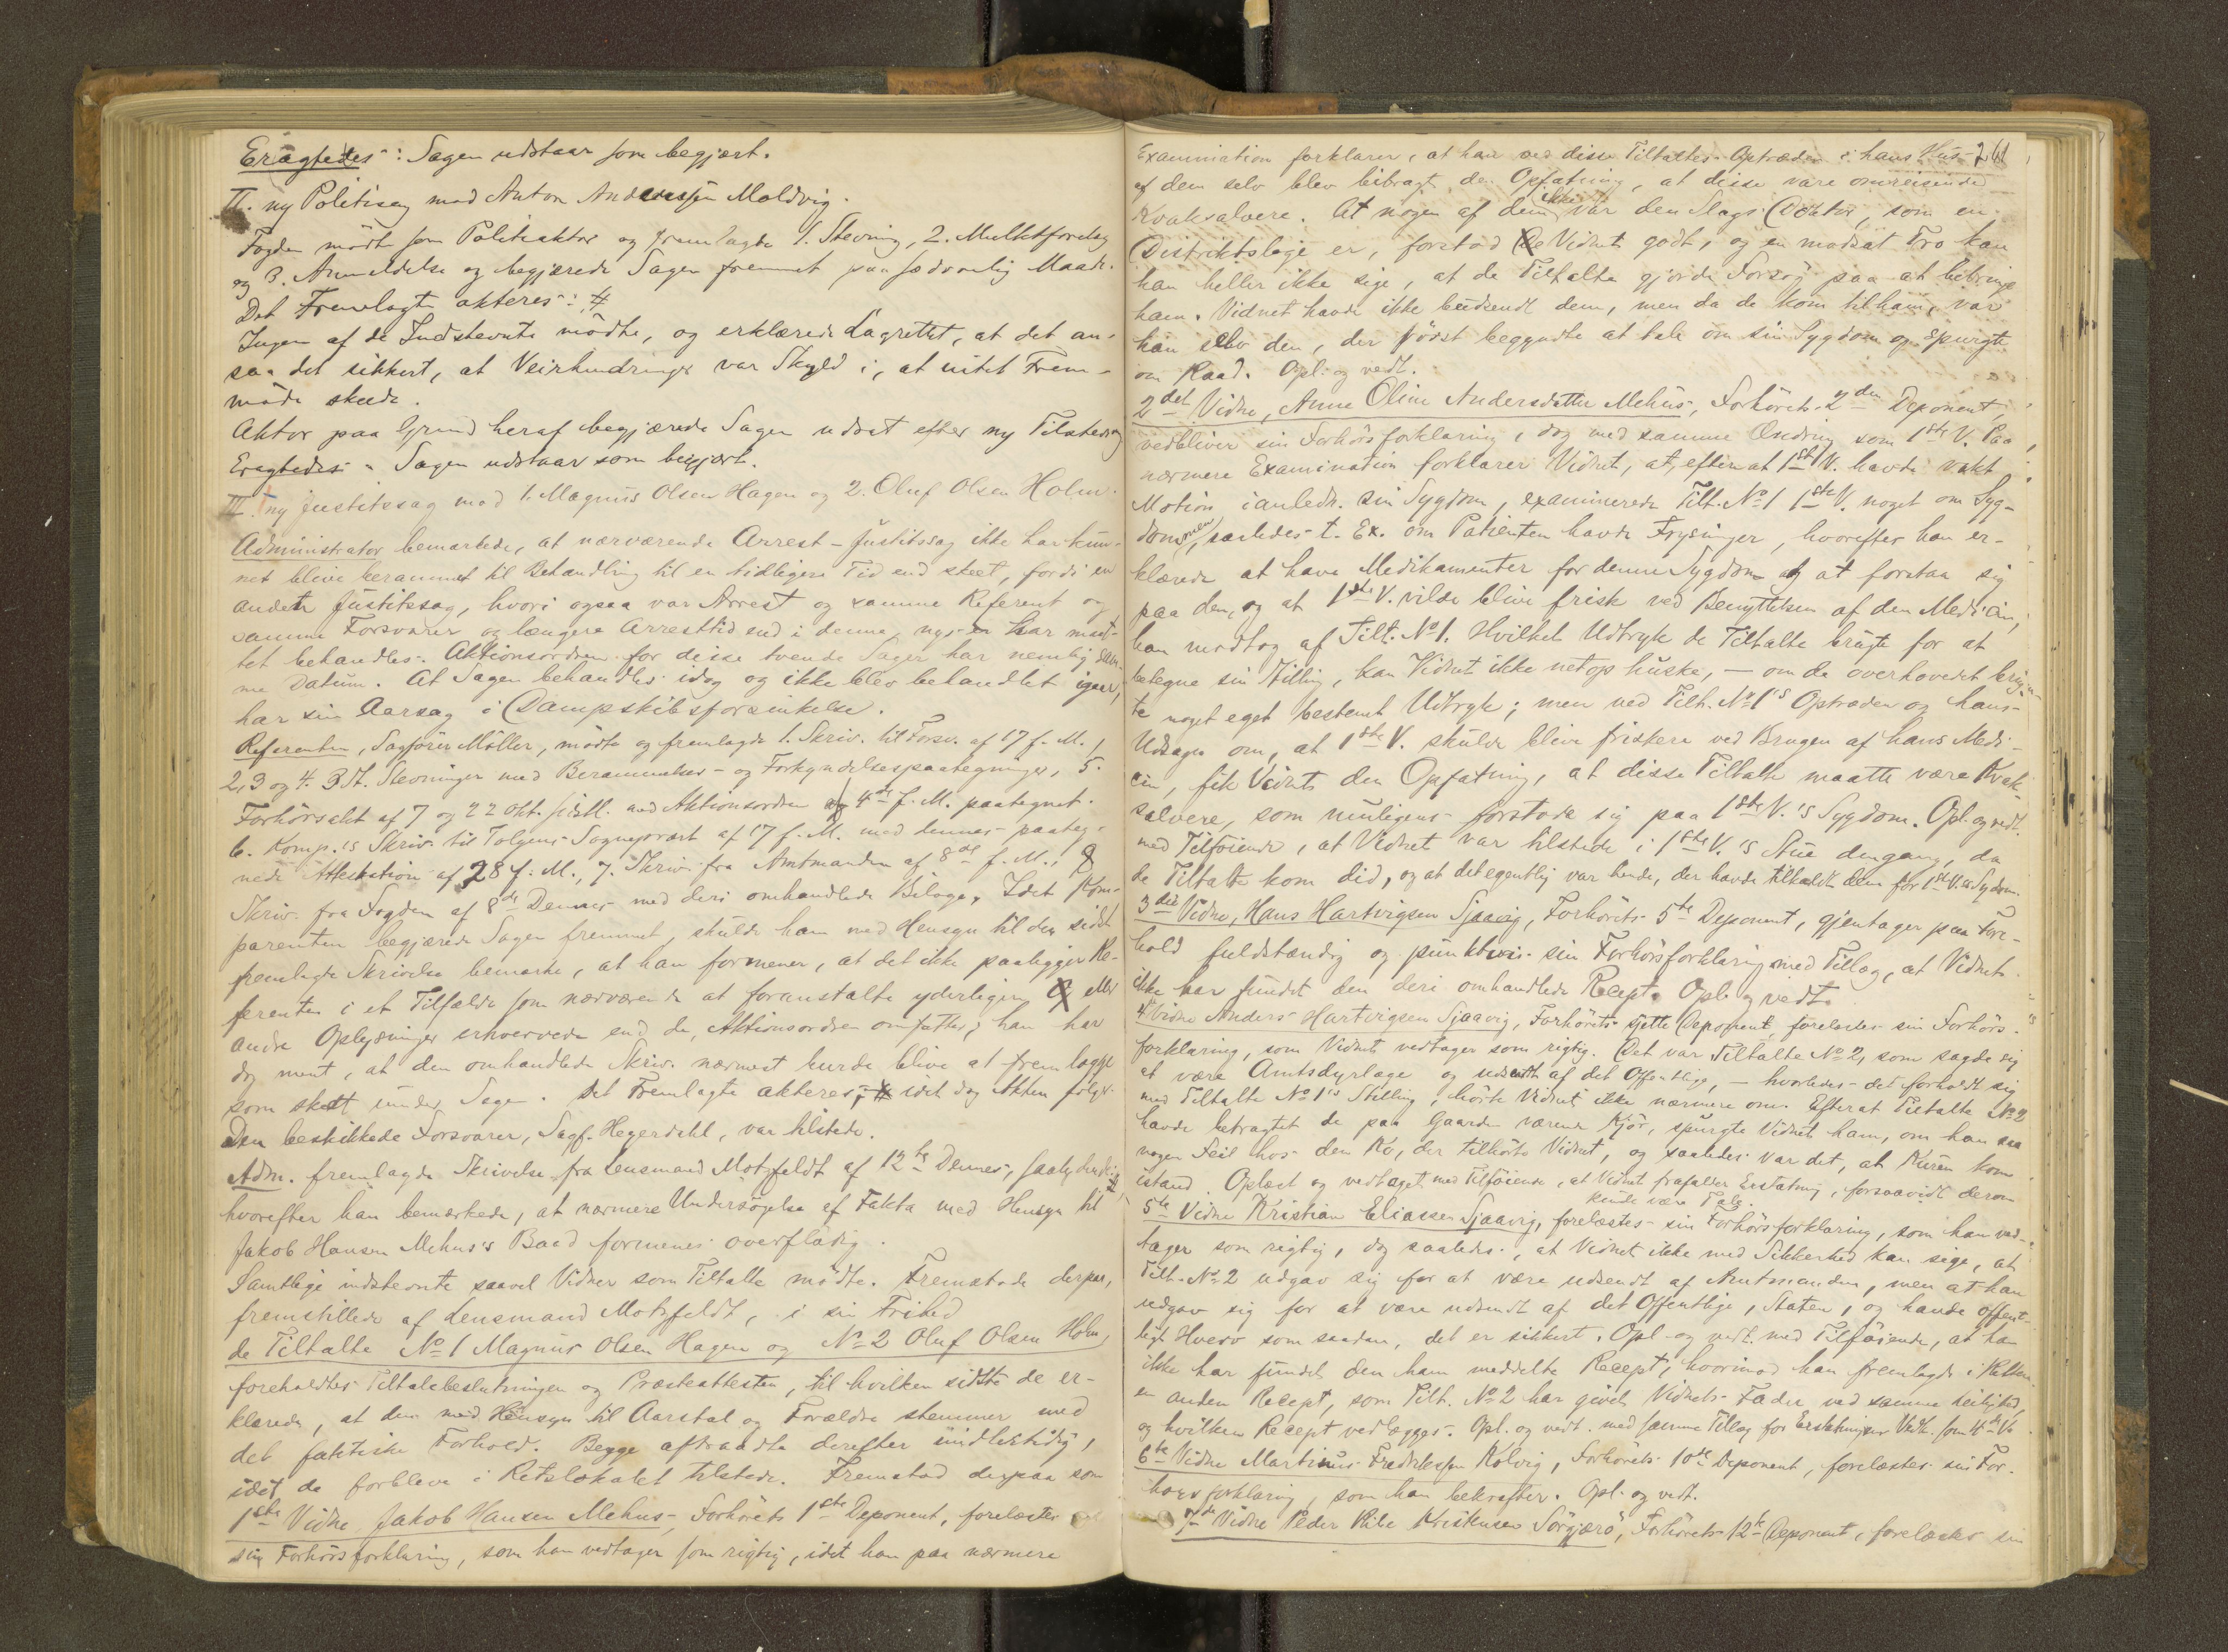 Eragtedes: Sagen udstaar som begjært.
II. ny Politisag mod Anton Anderssen Moldvig.
Fogden mødte som Politiaktor og fremlagde 1. Stevning, 2. Mulktsforelæg
og 3. Anmeldelse og begjærede Sagen fremmet paa sædvanlig Maade.
Det Fremlagte akteres: #
Ingen af de Indstevnte mødte, og erklærede Lagrettet, at det an-
saa det sikkert, at Veirhindringer var Skyld i, at intet Frem-
møde skede.
Aktor paa Grund heraf begjærede Sagen udsat efter ny Tilsteds
Eragtedes: Sagen udstaar som begjært.
III. ny Justitssag mod 1. Magnus Olsen Hagen og 2. Oluf Olsen Holm.
Administrator bemærkede, at nærværende Arrest-Justitssag ikke har kun-
net blive berammet til Behandling til en tidligere Tid end skeet, fordi en
anden Justitssag, hvori ogsaa var Arrest og samme Referent og
samme Forsvarer og længere Arresttid end i denne, nys har maat-
tet behandles. Aktionsordren for disse tvende Sager har nemlig sam-
me Datum. At Sagen behandles idag og ikke blev behandlet igaar,
har sin Aarsag i Dampskibsforsinkelse.
Referenten, Sagfører Møller, mødte og fremlagde 1. Skriv. til Forsv. af 17 f. M.,
2, 3 og 4. 3 St. Stevninger med Berammelses- og Forkyndelsespaategninger, 5.
Forhørsakt af 7 og 22 Okt. sidstl. med Aktionsordren af 4de f. M. paategnet.
6. Komp.'s Skriv. til Tolgens Sogneprest af 17 f. M. med dennes paateg-
nede Attestation af 28 f. M., 7. Skriv. fra Amtmanden af 8de f. M., 8
Skriv. fra Fogden af 8de Dennes med deri omhandlede Bilage. Idet Kom-
parenten begjærede Sagen fremmet, skulde han med Hensyn til den sidst
fremlagte Skrivelse bemærke, at han formener, at det ikke paaligger Re-
ferenten i et Tilfælde som nærværende at foranstalte yderligere eller
andre Oplysninger erhvervede end de, Aktionsordren omfatter; han har
dog ment, at den omhandlede Skriv. nærmest burde blive at fremlægge
som skeet under Sagen. Det Fremlagte akteres, # idet dog Akten følger.
Den beskikkede Forsvarer, Sagf. Hegerdahl, var tilstede.
Adm. fremlagde Skrivelse fra Lensmand Motzfeldt af 12te Dennes, saalydende #
hvorefter han bemærkede, at nærmere Undersøgelse af Fakta med Hensyn til
Jakob Hansen Mehus's Baad formenes overflødig.
Samtlige indstevnte saavel Vidner som Tiltalte mødte. Fremstode derpaa,
fremstillede af Lensmand Motzfeldt, i sin Frihed
de Tiltalte No 1 Magnus Olsen Hagen og No 2 Oluf Olsen Holm,
foreholdtes Tiltalebeslutningen og Præsteattesten, til hvilken sidste de er-
klærede, at den med Hensyn til Aarstal og Forældre stemmer med
det faktiske Forhold. Begge aftraadte derefter midlertidig,
idet de forbleve i Retslokalet tilstede. Fremstod derpaa som
1ste Vidne Jakob Hansen Mehus, Forhørets 1ste Deponent, forelæstes
sin Forhørsforklaring, som han vedtager som rigtig, idet han paa nærmere
261
Examination forklarer, at han ved disse Tiltaltes Optræden i hans Hus
af dem selv blev bibragt den Opfatning, at disse vare omreisende
Kvaksalvere. At nogen af dem ikke var den Slags Doktor, som en
Distriktslæge er, forstod Vidnet godt, og en modsat Tro kan
han heller ikke sige, at de Tiltalte gjorde Forsøg paa at bibringe
ham. Vidnet havde ikke budsendt dem, men da de kom til ham, var
han selv den, der først begyndte at tale om sin Sygdom og spurgte
om Raad. Opl. og vedt.
2det Vidne, Anne Oline Andersdatter Mehus, Forhørets 2den Deponent,
vedbliver sin Forhørsforklaring, dog med samme Ændring som 1ste V. Paa
nærmere Examination forklarer Vidnet, at, efterat 1ste V. havde vakt
Motion ianledn. sin Sygdom, examinerede Tilt. No 1 1ste V. noget om Syg-
dommen, saaledes t. Ex. om Patienten havde Frysninger, hvorefter han er-
klærede at have Medikamenter for denne Sygdom og at forstaa sig
paa den, og at 1ste V. vilde blive frisk ved Benyttelsen af den Medicin,
han modtog af Tilt. No 1. Hvilket Udtryk de Tiltalte brugte for at
betegne sin Stilling, kan Vidnet ikke netop huske, – om de overhovedet brug-
te noget eget bestemt Udtryk; men ved Tilt. No 1's Optræden og hans
Udsagn om, at 1ste V. skulde blive friskere ved Brugen af hans Medi-
cin, fik Vidnet den Opfatning, at disse Tiltalte maatte være Kvak-
salvere, som muligens forstode sig paa 1ste V.'s Sygdom. Opl. og vedt.
med Tilføiende, at Vidnet var tilstede i 1ste V.'s Stue dengang, da
de Tiltalte kom did, og at det egentlig var hende, der havde tilkaldt dem for 1ste V.'s Sygdom.
3die Vidne, Hans Hartvigsen Sjaavig, Forhørets 5te Deponent, gjentager paa Fore-
hold fuldstændig og punktvis sin Forhørsforklaring med Tillæg, at Vidnet
ikke har fundet den deri omhandlede Recept. Opl. og vedt.
4de Vidne Anders Hartvigsen Sjaavig, Forhørets sjette Deponent, forelæstes sin Forhørs-
forklaring, som Vidnet vedtager som rigtig. Det var Tiltalte No 2, som sagde sig
at være Amtsdyrlæge og udsendt af det Offentlige, – hvorledes det forholdt sig
med Tiltalte No 1's Stilling, hørte Vidnet ikke nærmere om. Efterat Tiltalte No 2
havde betragtet de paa Gaarden værende Kjør, spurgte Vidnet ham, om han saa
nogen Feil hos den Ko, der tilhørte Vidnet, og saaledes var det, at Kuren kom
istand. Oplæst og vedtaget med Tilføiende, at Vidnet frafalder Erstatning, forsaavidt derom
kunde være Tale.
5te Vidne Kristian Eliassen Sjaavig, forelæstes sin Forhørsforklaring, som han ved-
tager som rigtig, dog saaledes, at Vidnet ikke med Sikkerhed kan sige, at
Tilt. No 2 udgav sig for at være udsendt af Amtmanden, men at han
udgav sig for at være udsendt af det Offentlige, Staten, og havde offent-
ligt Hverv som saadan, det er sikkert. Opl. og vedt. med Tilføiende, at han
ikke har fundet den ham meddelte Recept, hvorimod han fremlagde i Retten
en anden Recept, som Tilt. No 2 har givet Vidnets Fader ved samme Leilighed,
og hvilken Recept vedlægges. Opl. og vedt. med samme Tillæg for Erstatningen Vedk. som 4de V.
6te Vidne Martinus Fredriksen Kolvig, Forhørets 10de Deponent, forelæstes sin For-
hørsforklaring, som han bekræfter. Opl. og vedt.
7de Vidne Peder Kristensen Sørgjerø, Forhørets 12te Deponent, forelæstes sin